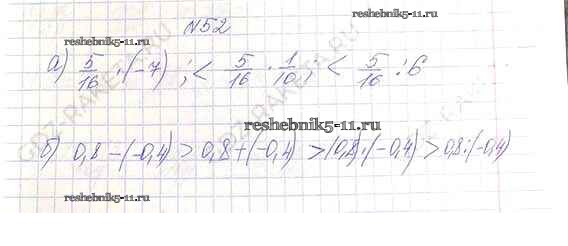 №52
reshebnik5-11.ru
reshebnik5-11.ru
а) 5/16 · (-7) ; < 5/16 · 1/10 ; < 5/16 : 6
reshebnik5-11.ru
б) 0,8 - (-0,4) > 0,8 + (-0,4) > (0,8) · (-0,4) > 0,8 : (-0,4)